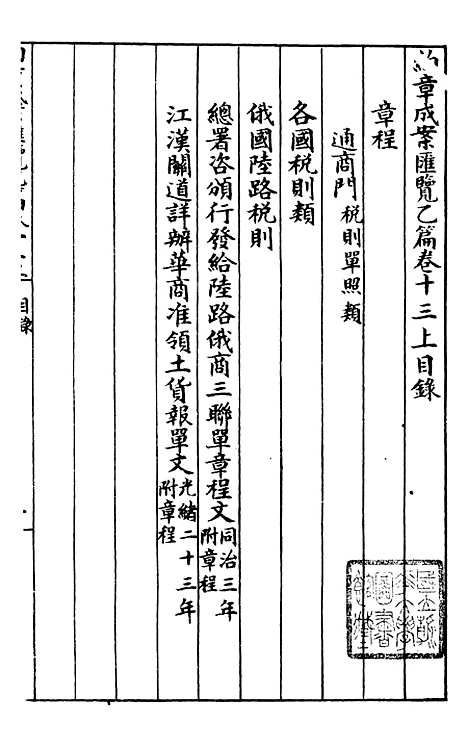 約章成案匯覽乙篇卷十三上目錄
章程
通商門 稅則單照類
各國稅則類
俄國陸路稅則
總署咨頒行發給陸路俄商三聯單章程文 同治三年 附章程
江漢關道詳辦華商准領土貨報單文 光緒二十三年 附章程
目錄